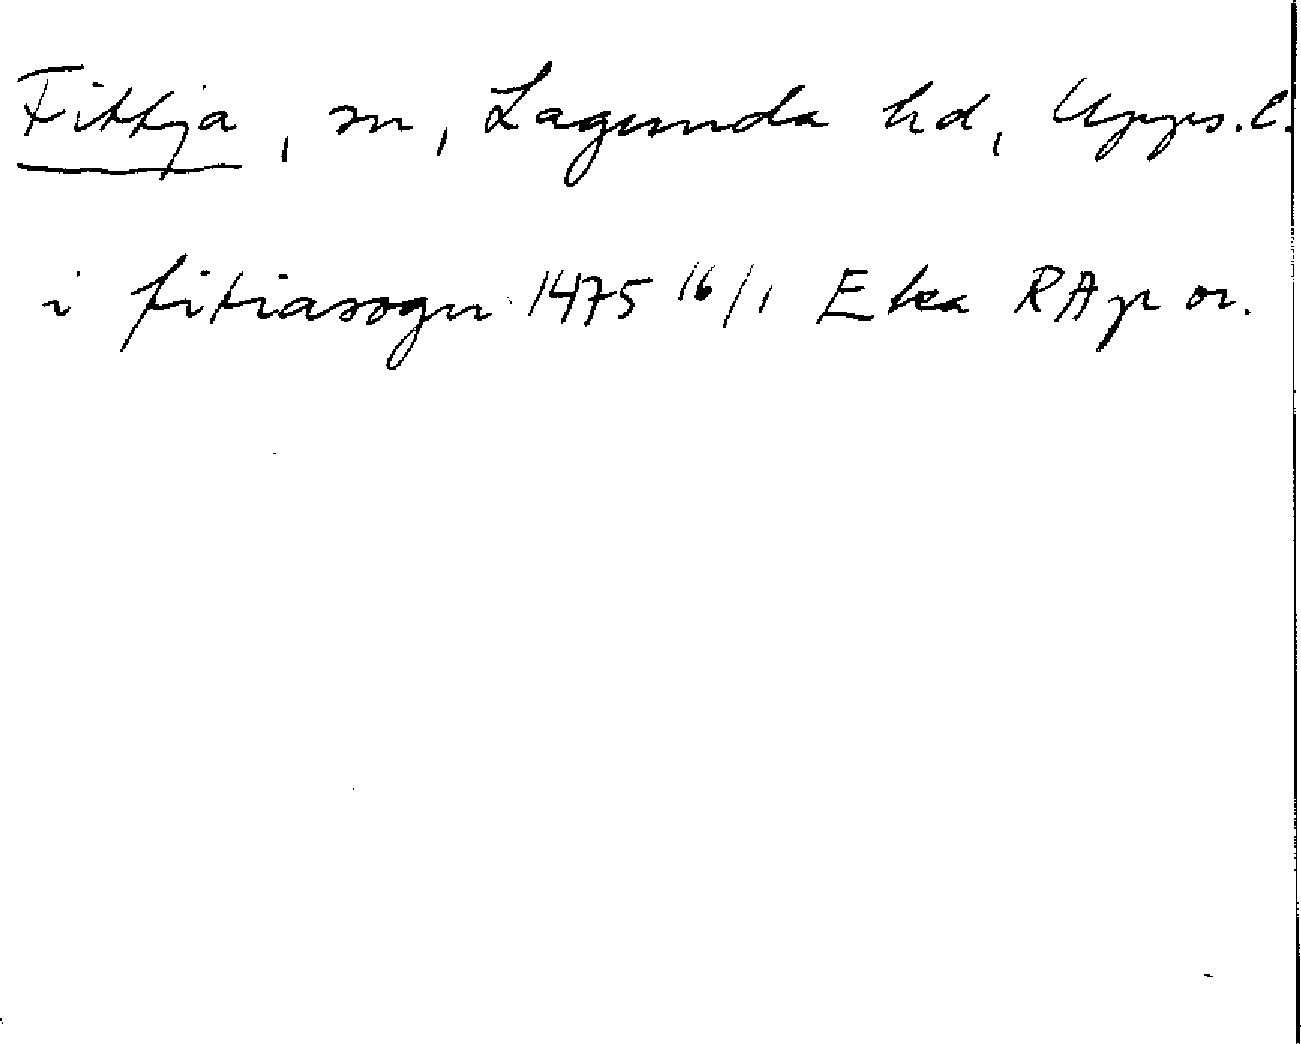 Fittja, sn, Lagunda hd, Upps. l.
i fitiasogn 1475 16/1 Eka RAp or.